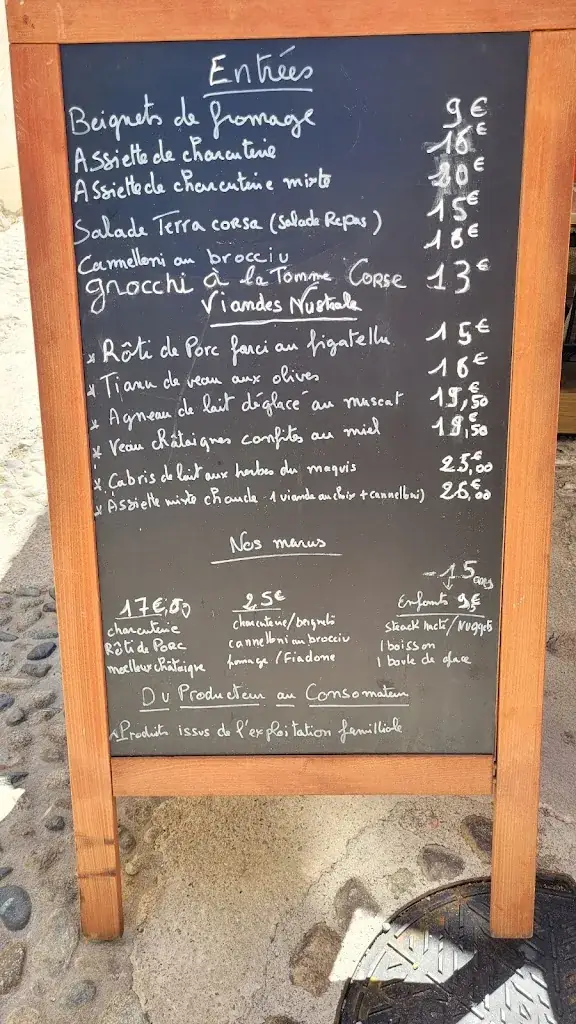 Entrées
Beignets de fromage 9€
Assiette de charcuterie 16€
Assiette de charcuterie mixte 20€
Salade Terra corsa (Salade Repas) 15€
Cannelloni au brocciu 18€
gnocchi à la Tomme CORSE 13€
Viandes Nustrale
* Rôti de Porc farci au figatellu 15€
* Tianu de veau aux olives 16€
* Agneau de lait déglacé au muscat 19,€50
* Veau châtaignes confites au miel 19,50
* Cabris de lait aux herbes du maquis 25,€00
* Assiette mixte chaude 1 viande au choix + cannelloni) 26,€00
Nos menus
17€,00
charcuterie
Rôti de Porc
moelleux châtaigne
25€
charcuterie/beignets
cannelloni au brocciu
fromage / Fiadone
-15 ans
Enfants 9€
steack haché/Nuggets
1 boisson
1 boule de glace
Du Producteur au Consomateur
Produits issus de l'exploitation familliale